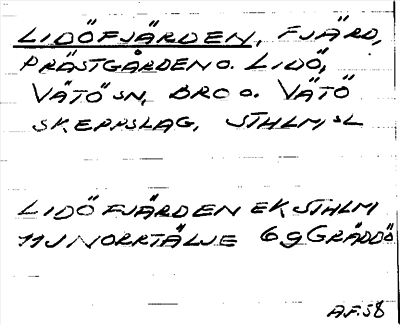 LIDÖFJÄRDEN, FJÄRD,
PRÄSTGÅRDEN O. LIDÖ,
VÄTÖ SN, BRO O. VÄTÖ
SKEPPSLAG, STHLMSL
LIDÖFJÄRDEN EK STHLM
11J NORRTÄLJE 6g GRÄDDÖ
A.F. 58